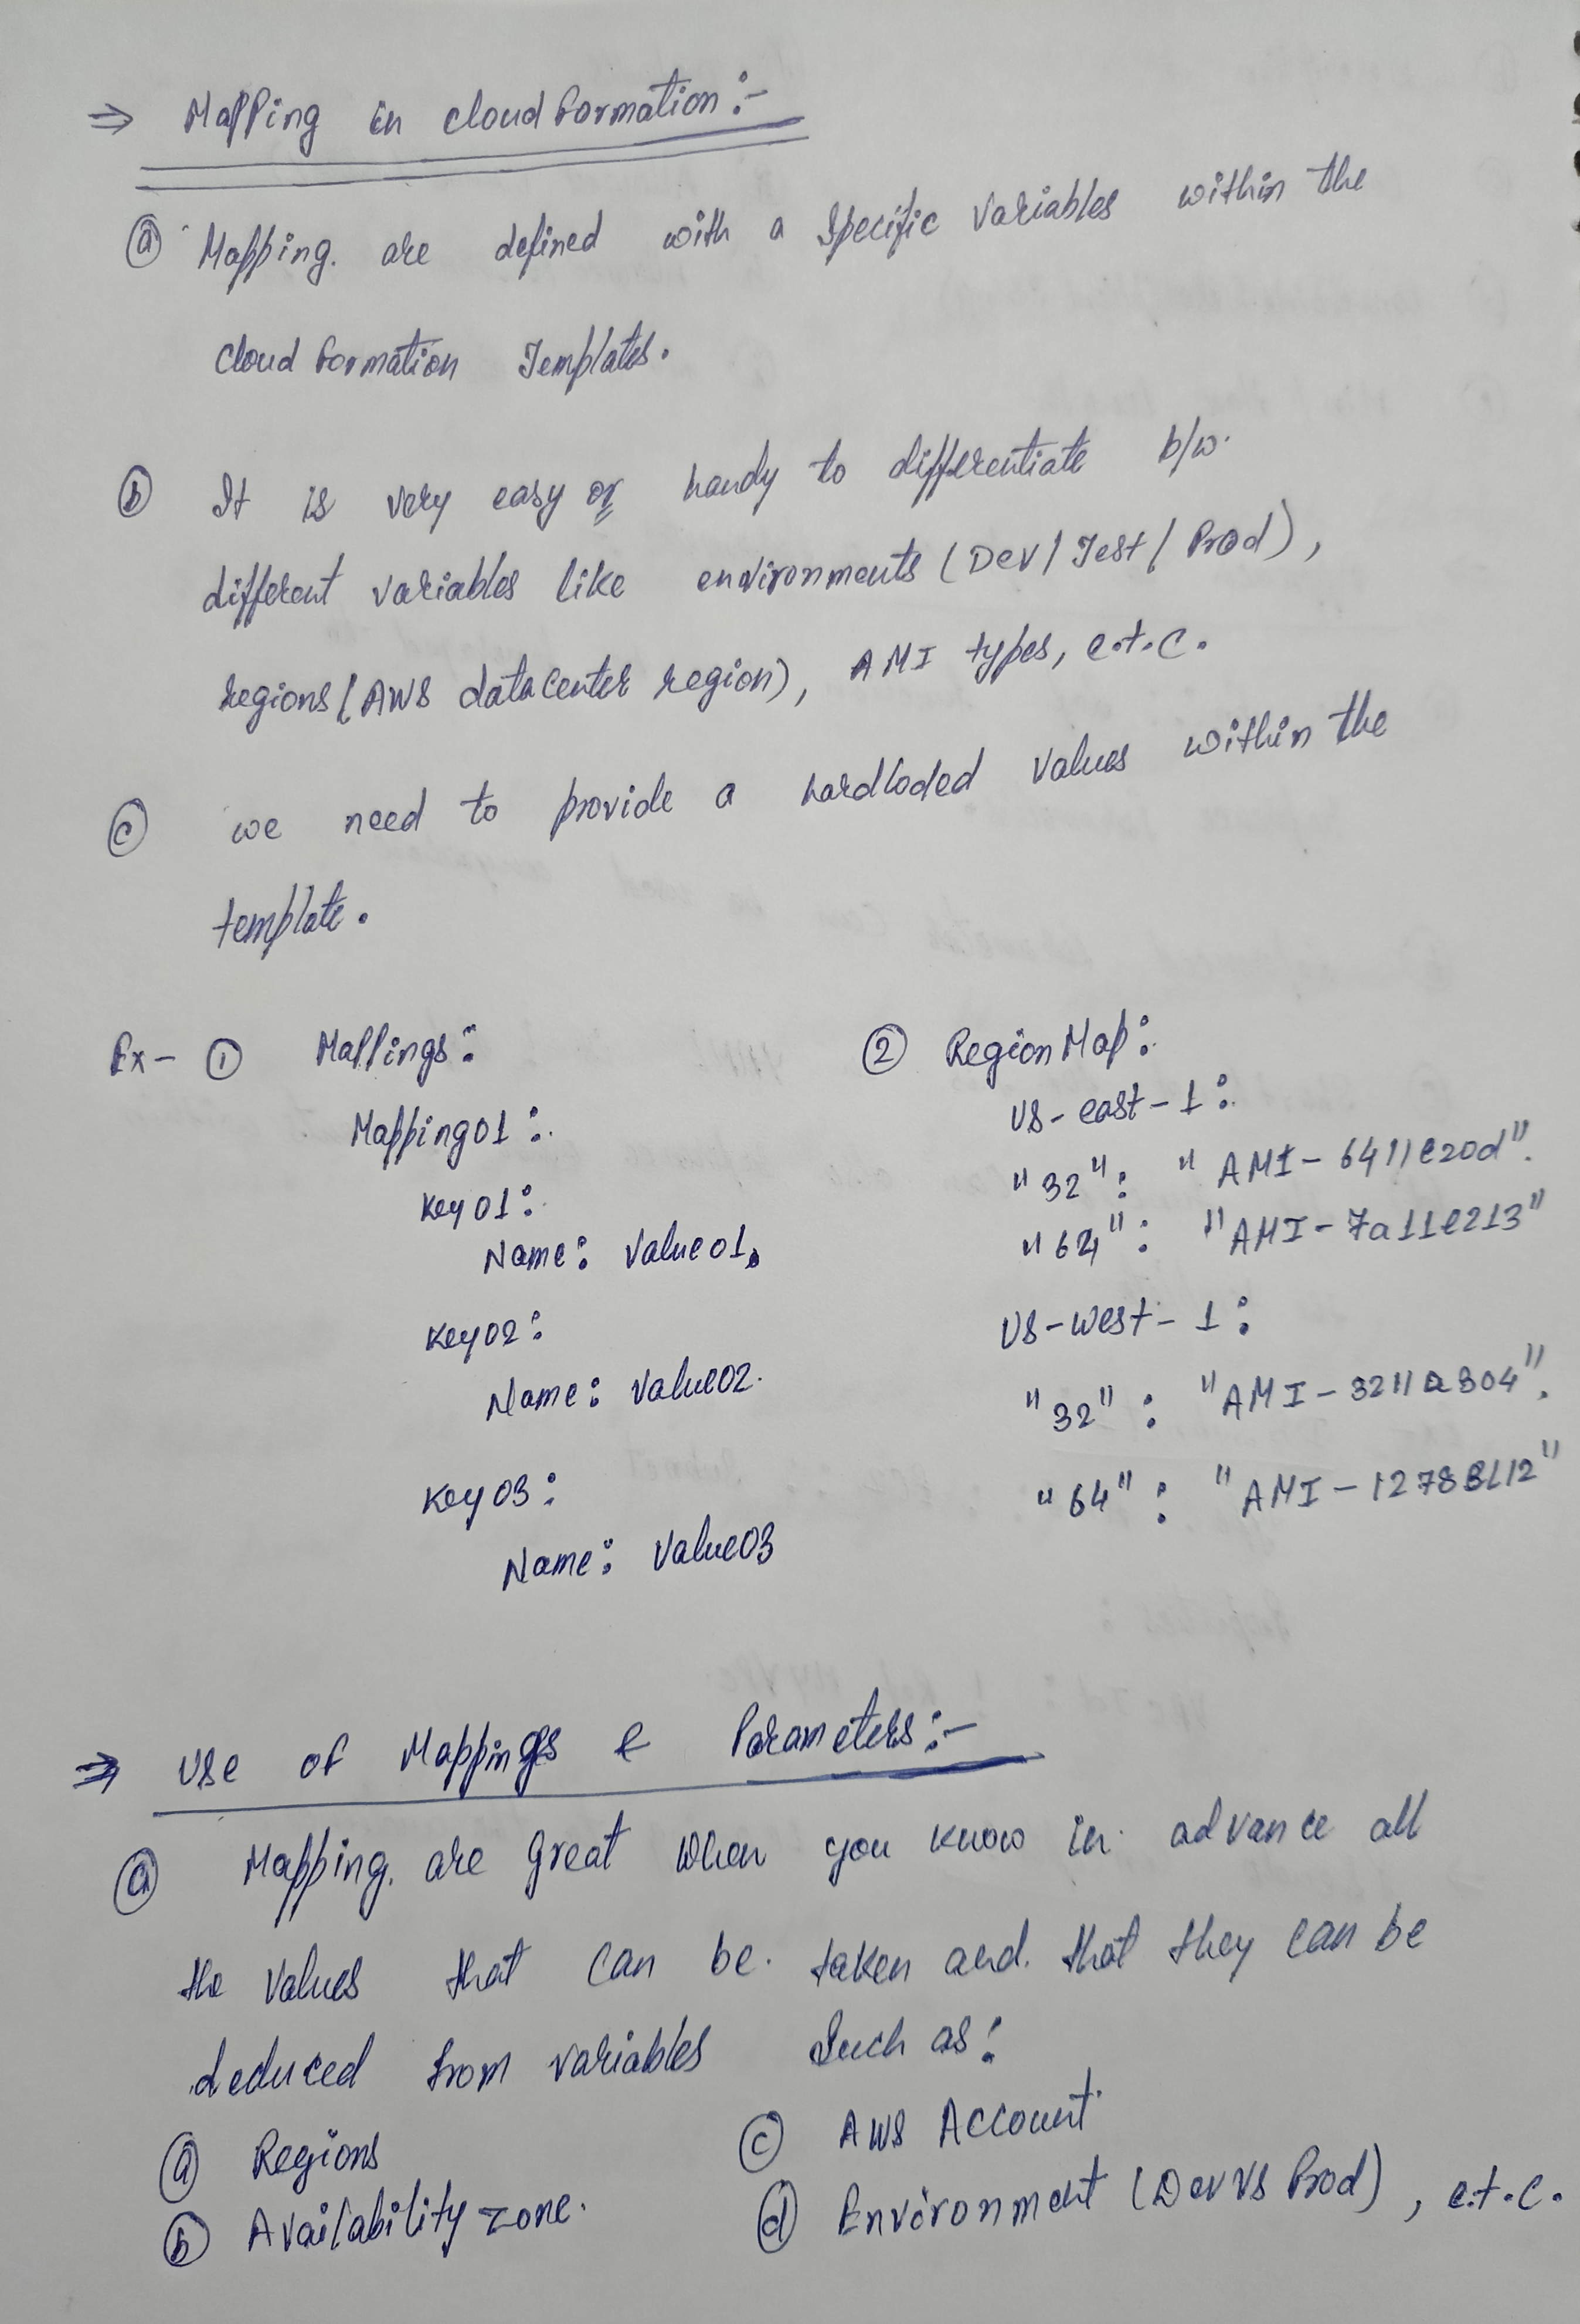 ⇒ Mapping in cloudformation:-
ⓐ Mapping. are defined with a specific variables within the
cloud formation Templates.
ⓑ It is very easy or handy to differentiate b/w.
different variables like environments (Dev/Test/Prod),
regions (AWS datacenter region), AMI types, e.t.c.
ⓒ we need to provide a hardcoded values within the
template.
Ex- ① Mappings:
Mapping01:
Key01:
Name: Value01.
Key02:
Name: Value02.
Key03:
Name: Value03
② RegionMap:
US-east-1:
"32": "AMI-6411e20d".
"64": "AMI-7a11e213"
US-west-1:
"32": "AMI-3211a304".
"64":
⇒ Use of Mappings & Parameters:-
ⓐ Mapping. are great when you know in advance all
the values that can be. taken and. that they can be
deduced from variables such as:
ⓐ Regions
ⓑ Availability zone.
ⓒ AWS Account.
ⓓ Environment (Dev vs Prod), e.t.c.